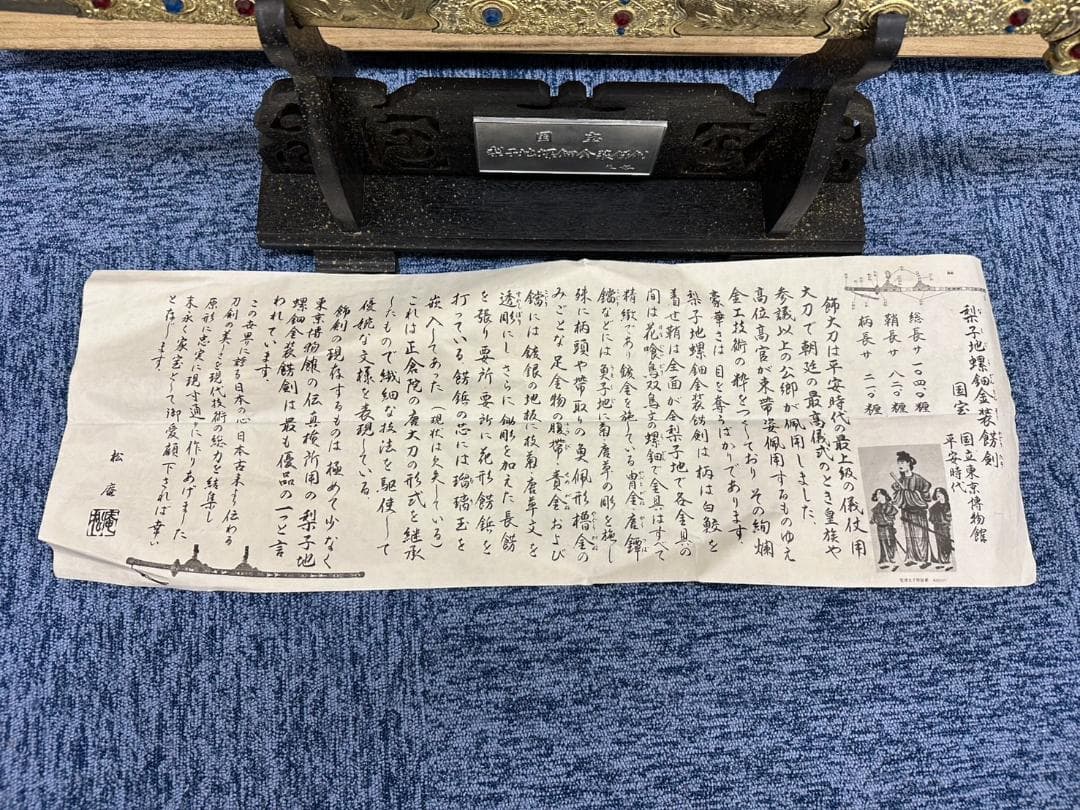 国宝
梨子地螺鈿金装飾剣
梨子地螺鈿金装餝剣
国宝
国立東京博物館
平安時代
総長サ 一〇四・〇糎
鞘長サ 八二・〇糎
柄長サ 二一・〇糎
飾大刀は平安時代の最上級の儀仗用
大刀で朝廷の最高儀式のとき皇族や
参議以上の公卿が佩用しました
高位高官が束帯姿佩用するものゆえ
金工技術の粋をつくしており その絢爛
豪華さは目を奪うばかりであります
梨子地螺鈿金装餝剣は柄は白鮫を
着せ鞘は全面が金梨子地で各金具の
間は花喰鳥双鳥文の螺鈿で金具はすべて
精緻であり鍍金を施している 冑金 唐鐔
鐺などには 魚子地に菊唐草の彫を施し
殊に柄頭や帯取りの魚佩形櫓金の
みごとな足金物の腹帯 責金および
鐺には 鍍銀の地板に枝菊唐草文を
透彫にし さらに鋤彫を加えた長餝
を張り要所〻要所に花形餝鋲を
打っている 餝鋲の芯には瑠璃玉を
嵌入してあった（現状は欠失している）
これは正倉院の唐大刀の形式を継承
したもので繊細な技法を駆使して
優婉な文様を表現している
飾剣の現存するものは極めて少なく
東京博物館の伝真検所用の梨子地
螺鈿金装餝剣は最も優品の一つと言
われています。
この世界に誇る日本の心 日本古来より伝わる
刀剣の美しさを現代技術の総力を結集し
原形に忠実に現す通りに作りあげました
末永く家宝として御愛顧下されば幸い
と存じます。
松庵